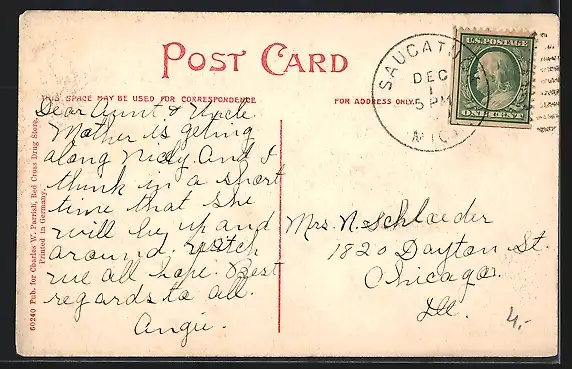 POST CARD
THIS SPACE MAY BE USED FOR CORRESPONDENCE
FOR ADDRESS ONLY.
SAUGATU
DEC
1
5 PM
MICH
U.S. POSTAGE
ONE CENT
Dear Aunt & Uncle
Mother is geting
along Nicely. And I
think in a short
time that she
will be up and
around. Witch
we all hope. Best
regards to all.
Angie.
Mrs. N. Schlaeder
1820 Dayton St.
Chicago
Ill.
4.-
60240 Pub. for Charles W. Parrish, Red Cross Drug Store.
Printed in Germany.